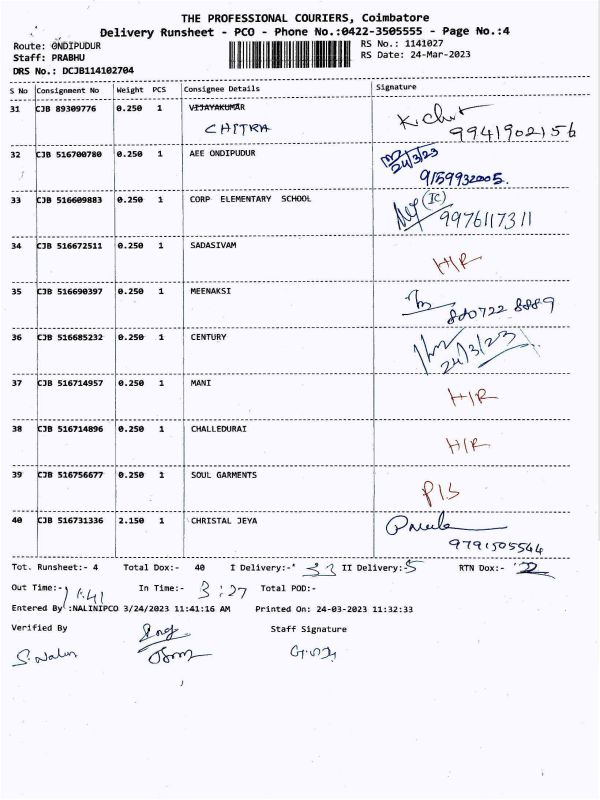 THE PROFESSIONAL COURIERS, Coimbatore
Delivery Runsheet - PCO - Phone No.:0422-3505555 - Page No.:4
Route: ONDIPUDUR RS No.: 1141027
Staff: PRABHU RS Date: 24-Mar-2023
DRS No.: DCJB114102704
S No Consignment No Weight PCS Consignee Details Signature
31 CJB 89309776 0.250 1 VIJAYAKUMAR
CHITRA 9941902156
32 CJB 516700780 0.250 1 AEE ONDIPUDUR 24/3/23
9159932005.
33 CJB 516609883 0.250 1 CORP ELEMENTARY SCHOOL (IC)
9976117311
34 CJB 516672511 0.250 1 SADASIVAM
H/R
35 CJB 516690397 0.250 1 MEENAKSI
880722 8889
36 CJB 516685232 0.250 1 CENTURY
24/3/23
37 CJB 516714957 0.250 1 MANI
H/R
38 CJB 516714896 0.250 1 CHALLEDURAI
H/R
39 CJB 516756677 0.250 1 SOUL GARMENTS
40 CJB 516731336 2.150 1 CHRISTAL JEYA
9791505544
Tot. Runsheet:- 4 Total Dox:- 40 I Delivery:- 33 II Delivery:- 5 RTN Dox:- 2
Out Time:- 11:41 In Time:- 3:27 Total POD:-
Entered By :NALINIPCO 3/24/2023 11:41:16 AM Printed On: 24-03-2023 11:32:33
Verified By Staff Signature